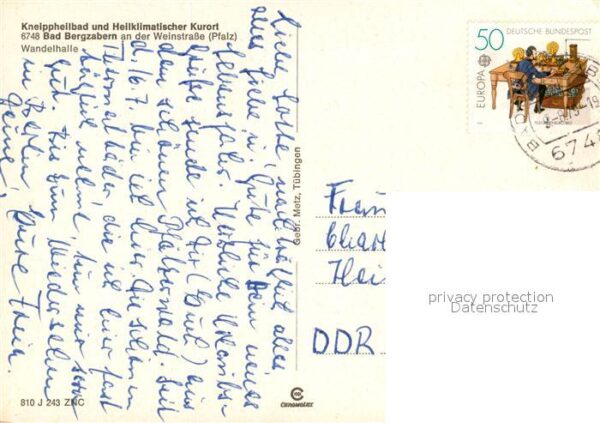 Kneippheilbad und Heilklimatischer Kurort
6748 Bad Bergzabern an der Weinstraße (Pfalz)
Wandelhalle
Liebe Lotte, nachträglich alles
alles Liebe u. Gute für Dein neues
Lebensjahr. Herzliche Urlaubs-
grüße sende ich Dir
dem schönen Pfälzerwald. Seit
d. 16.7. bin ich hier. Die schönen
Thermalbäder, die ich hier fast
nehme, tun mir sehr
gut. Bis zum Wiedersehen
in Berlin,
Deine
Gebr. Metz, Tübingen
50
DEUTSCHE BUNDESPOST
EUROPA
6748
Frau
Hei
DDR
privacy protection
Datenschutz
810 J 243 ZNC